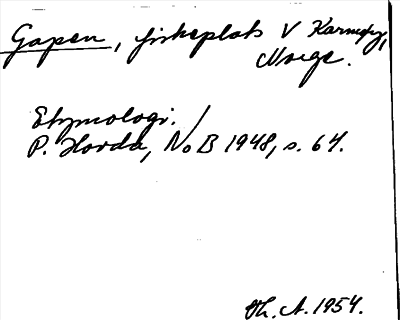 Gapen, fiskeplats V Karmøy,
Norge.
Etymologi.
P. Hovda, NoB 1948, s. 64.
Th. A. 1954.